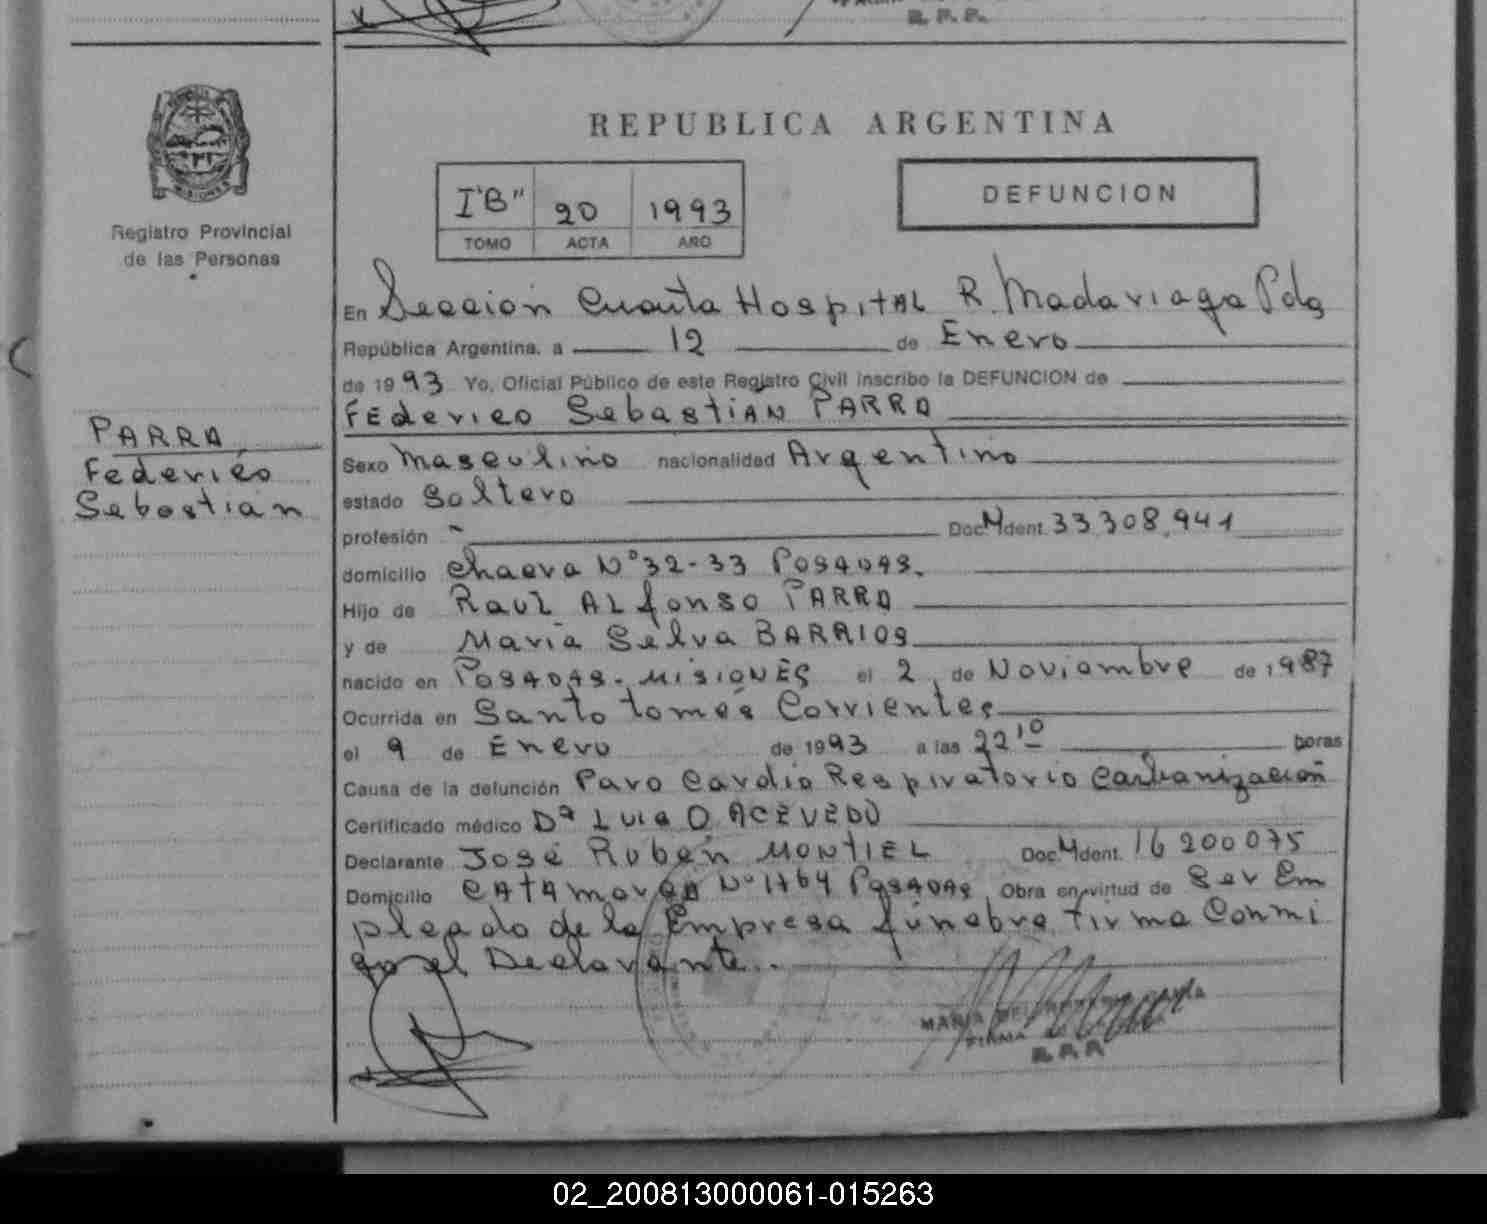 B. P. P.
REPUBLICA ARGENTINA
MISIONES
Registro Provincial
de las Personas
I "B" 20 1993
TOMO ACTA AÑO
DEFUNCION
En Seccion Cuarta Hospital R. Madariaga Pdas
República Argentina, a 12 de Enero
de 1993 Yo, Oficial Público de este Registro Civil inscribo la DEFUNCION de
Federico Sebastian PARRA
PARRA
Federico
Sebastian
Sexo Masculino nacionalidad Argentino
estado Soltero
profesión - Doc. N Ident. 33.308.941
domicilio Chacra Nº 32-33 Posadas.
Hijo de Raul Alfonso PARRA
y de Maria Selva BARRIOS
nacido en Posadas - Misiones el 2 de Noviembre de 1987
Ocurrida en Santo tomés Corrientes
el 9 de Enero de 1993 a las 22 10 horas
Causa de la defunción Paro Cardio Respiratorio Carbonización
Certificado médico Dr Luis O ACEVEDO
Declarante José Rubén MONTIEL Doc. N Ident. 16 200 075
Domicilio Catamarca Nº 1764 Posadas Obra en virtud de Ser Em
pleado de la Empresa fúnebre, firma Conmi
go el Declarante..
MARIA DEL
FIRMA
B. P. P.
02_200813000061-015263